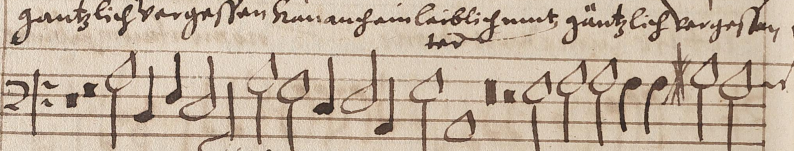 gantzlich vergessen kan auch ein leiblich mut gäntzlich vergessen
ter